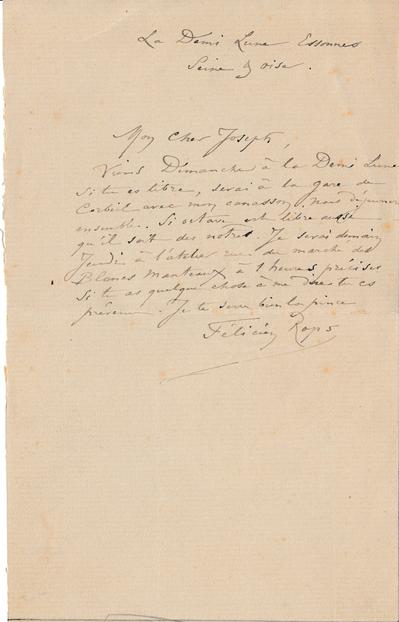 La Demi Lune Essonnes
Seine & oise.
Mon cher Joseph,
Viens Dimanche à la Demi Lune
Si tu es libre, serai à la gare de
Corbeil avec mon canasson, nous déjeunerons
ensemble. Si octave est libre aussi
qu'il soit des notres. Je serai demain
Jeudi à l'atelier rue du marché des
Blancs Manteaux à 1 heures précises
Si tu as quelque chose à me dire tu es
prévenu. Je te serre bien la pince
Félicien Rops